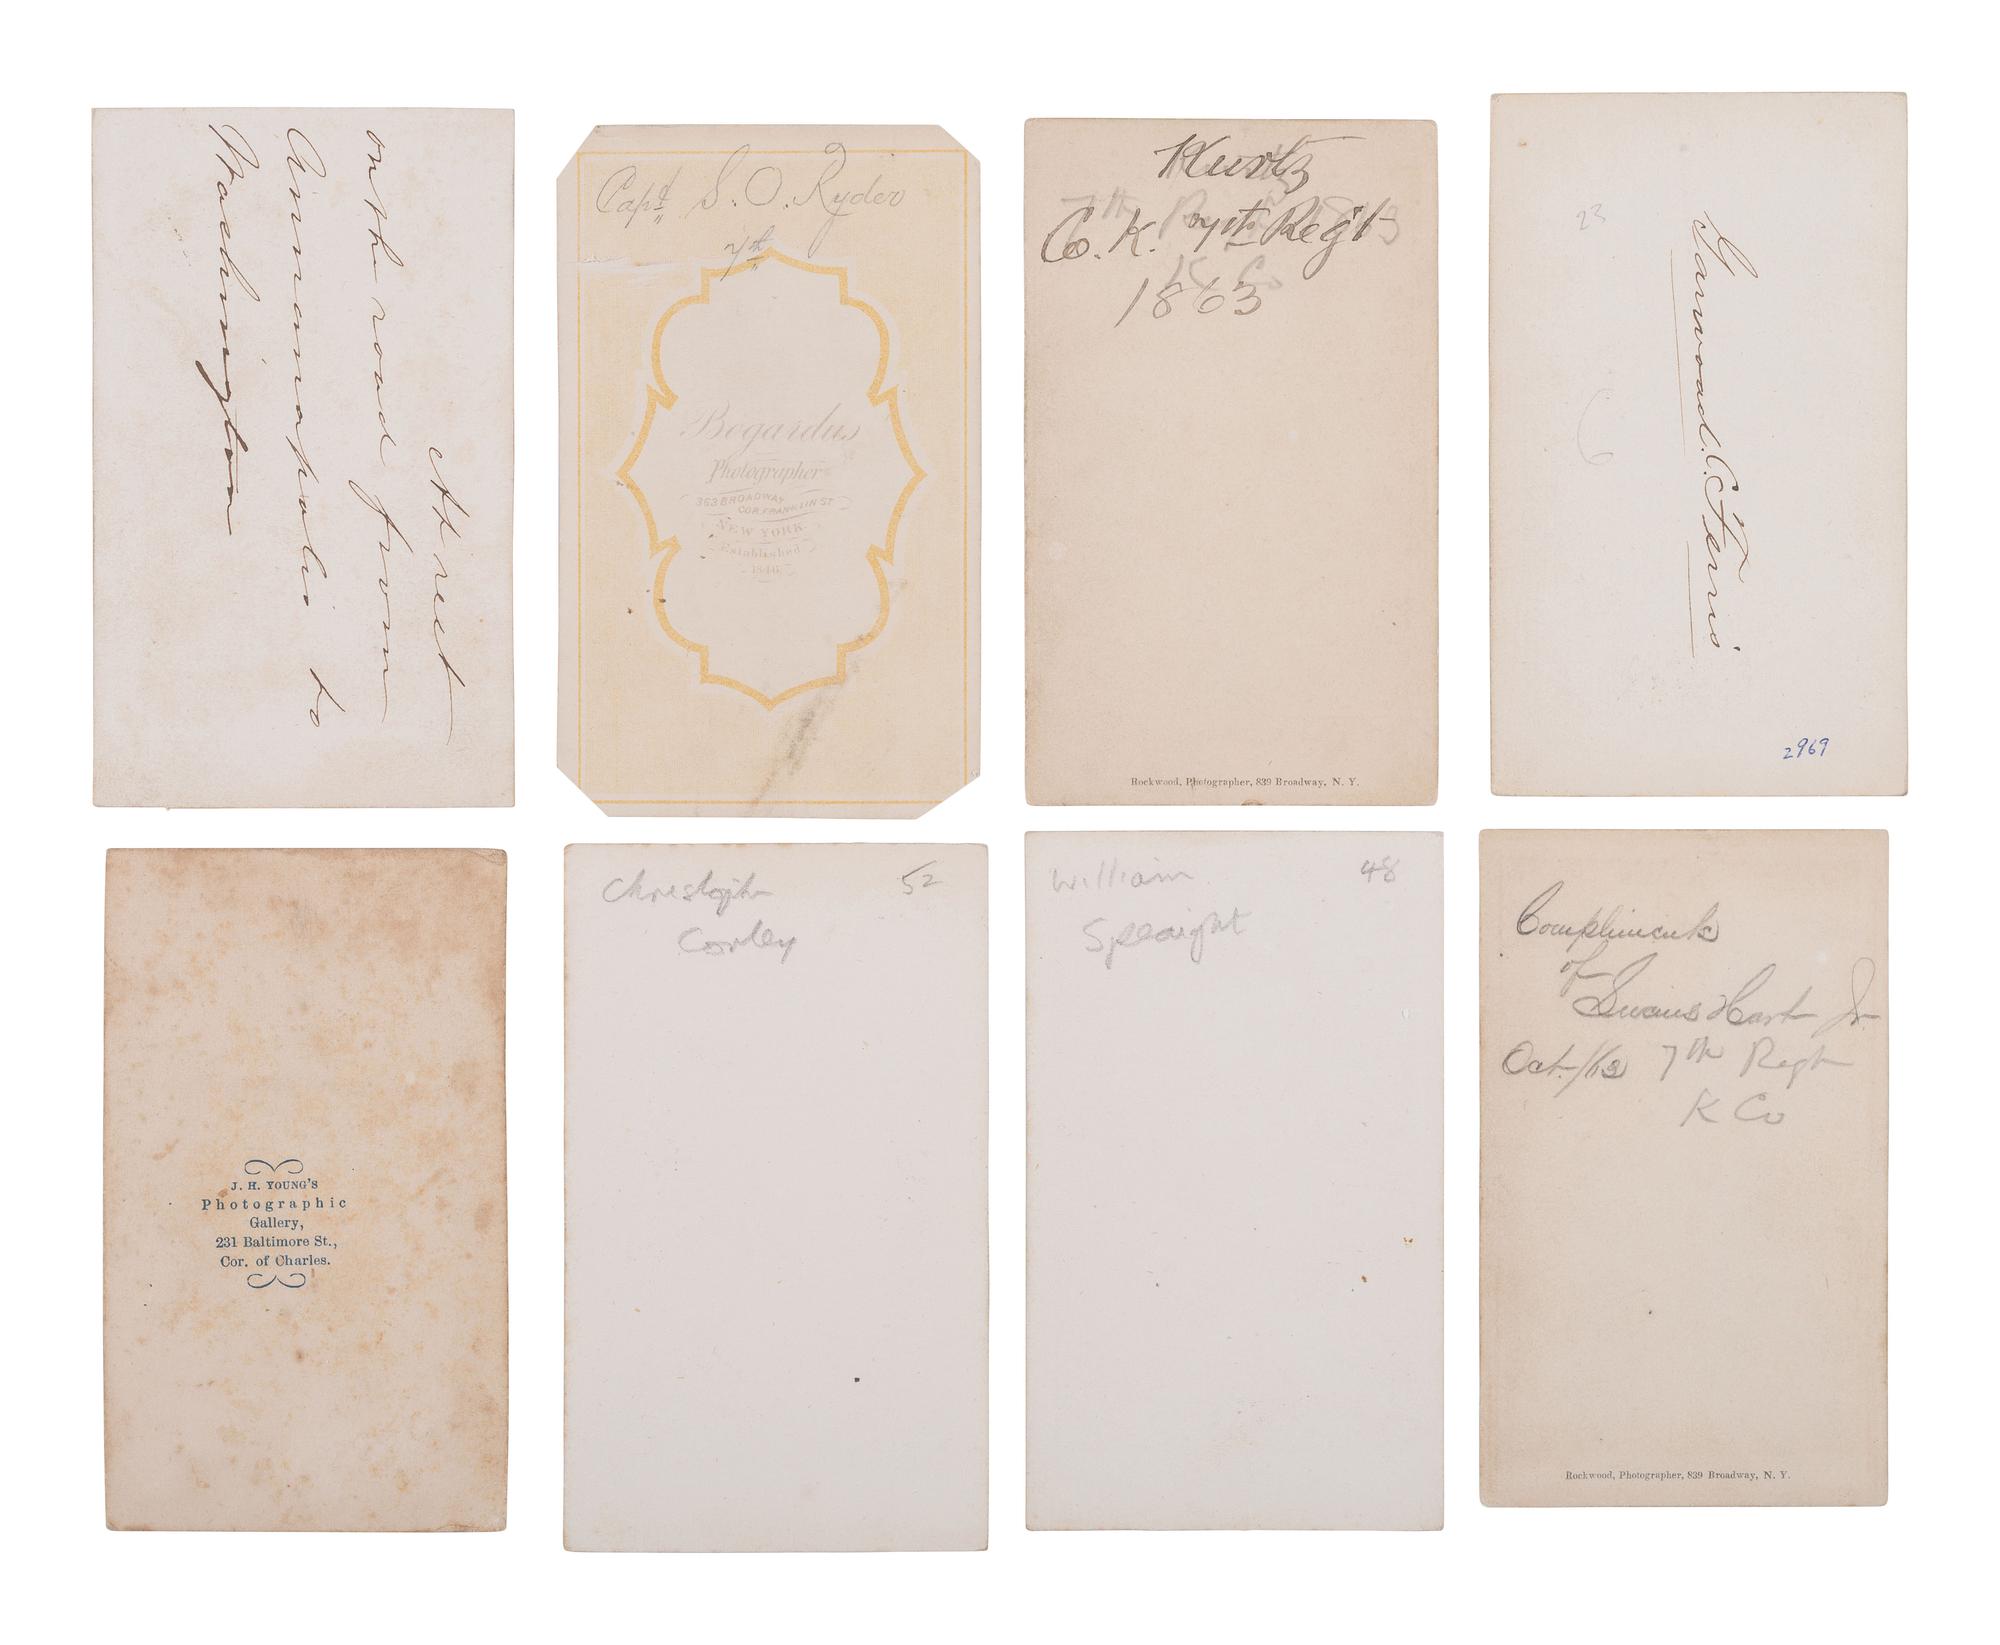 A street
on the road from
Annanapolis to
Washington
Capt. S. O. Ryder
7th
Bogardus
Photographer
363 BROADWAY
COR. FRANKLIN ST
NEW YORK
Established
1846
Kurtz
Co. K. 7th Regt
1863
Rockwood, Photographer, 839 Broadway, N. Y.
23
Garwood. C. Ferris
6
2969
J. H. YOUNG'S
Photographic
Gallery,
231 Baltimore St.,
Cor. of Charles.
Christoph 52
Conley
William 48
Speaight
Compliments
of
Hart Jr
Oct. 7th Regt
K Co
Rockwood, Photographer, 839 Broadway, N. Y.